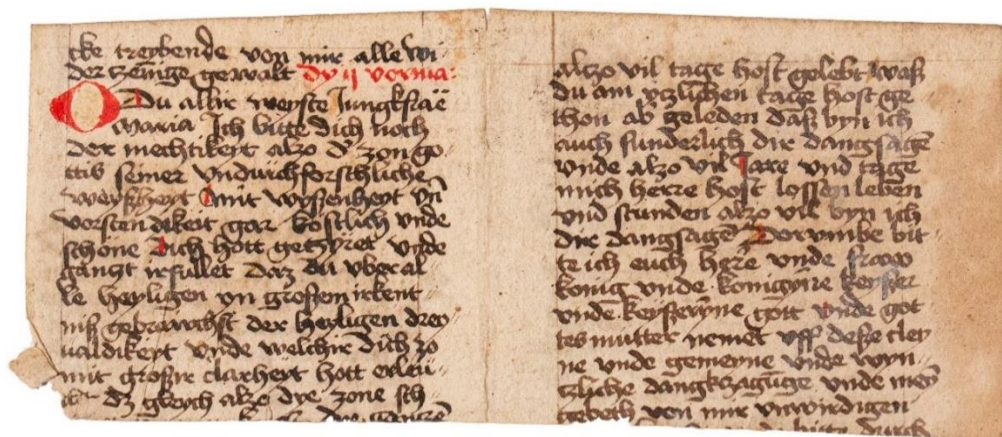 cke treybende von mir alle wi-
der zeŭnige gewalt dy ij vorma:
O Du allir weyste Jungkfraē
maria Ich bitte dich noch
der mechtikeyt alzo d' zon go-
ttis seiner vndurchforschliche
weyßheyt mit wyssenheyt vn̄
vorstendikeit gar kostlich vnde
schone dich hott getzyret vnde
gantzt irfullet daz du vber al-
le heyligen yn großem irkent-
niß gebrawchst der heyligen drey-
ualdikeyt vnde welchir dich zo
mit großir clarheyt hott erleu-
dz gleych alzo dye zone sch
dye gantzē
alzo vil tage host gelebt waß
du am ytzlichen tage host ge
thon ab geleden daß byn ich
auch sunderlich dir dangsagē
vnde alzo vil Jare vnd tage
mich herre host lossen leben
vnd stunden alzo vil byn ich
dir dangsagē Dor vmbe bit-
te ich euch here vnde fraw
konig vnde konigyne keyser
vnde keyseryne got vnde got
tes mutter nemet vff deße cley
ne vnde gemeyne vnde wyn-
tzliche dangkzagūge vnde meȳ
gebeth von mir vnwirdigen
durch